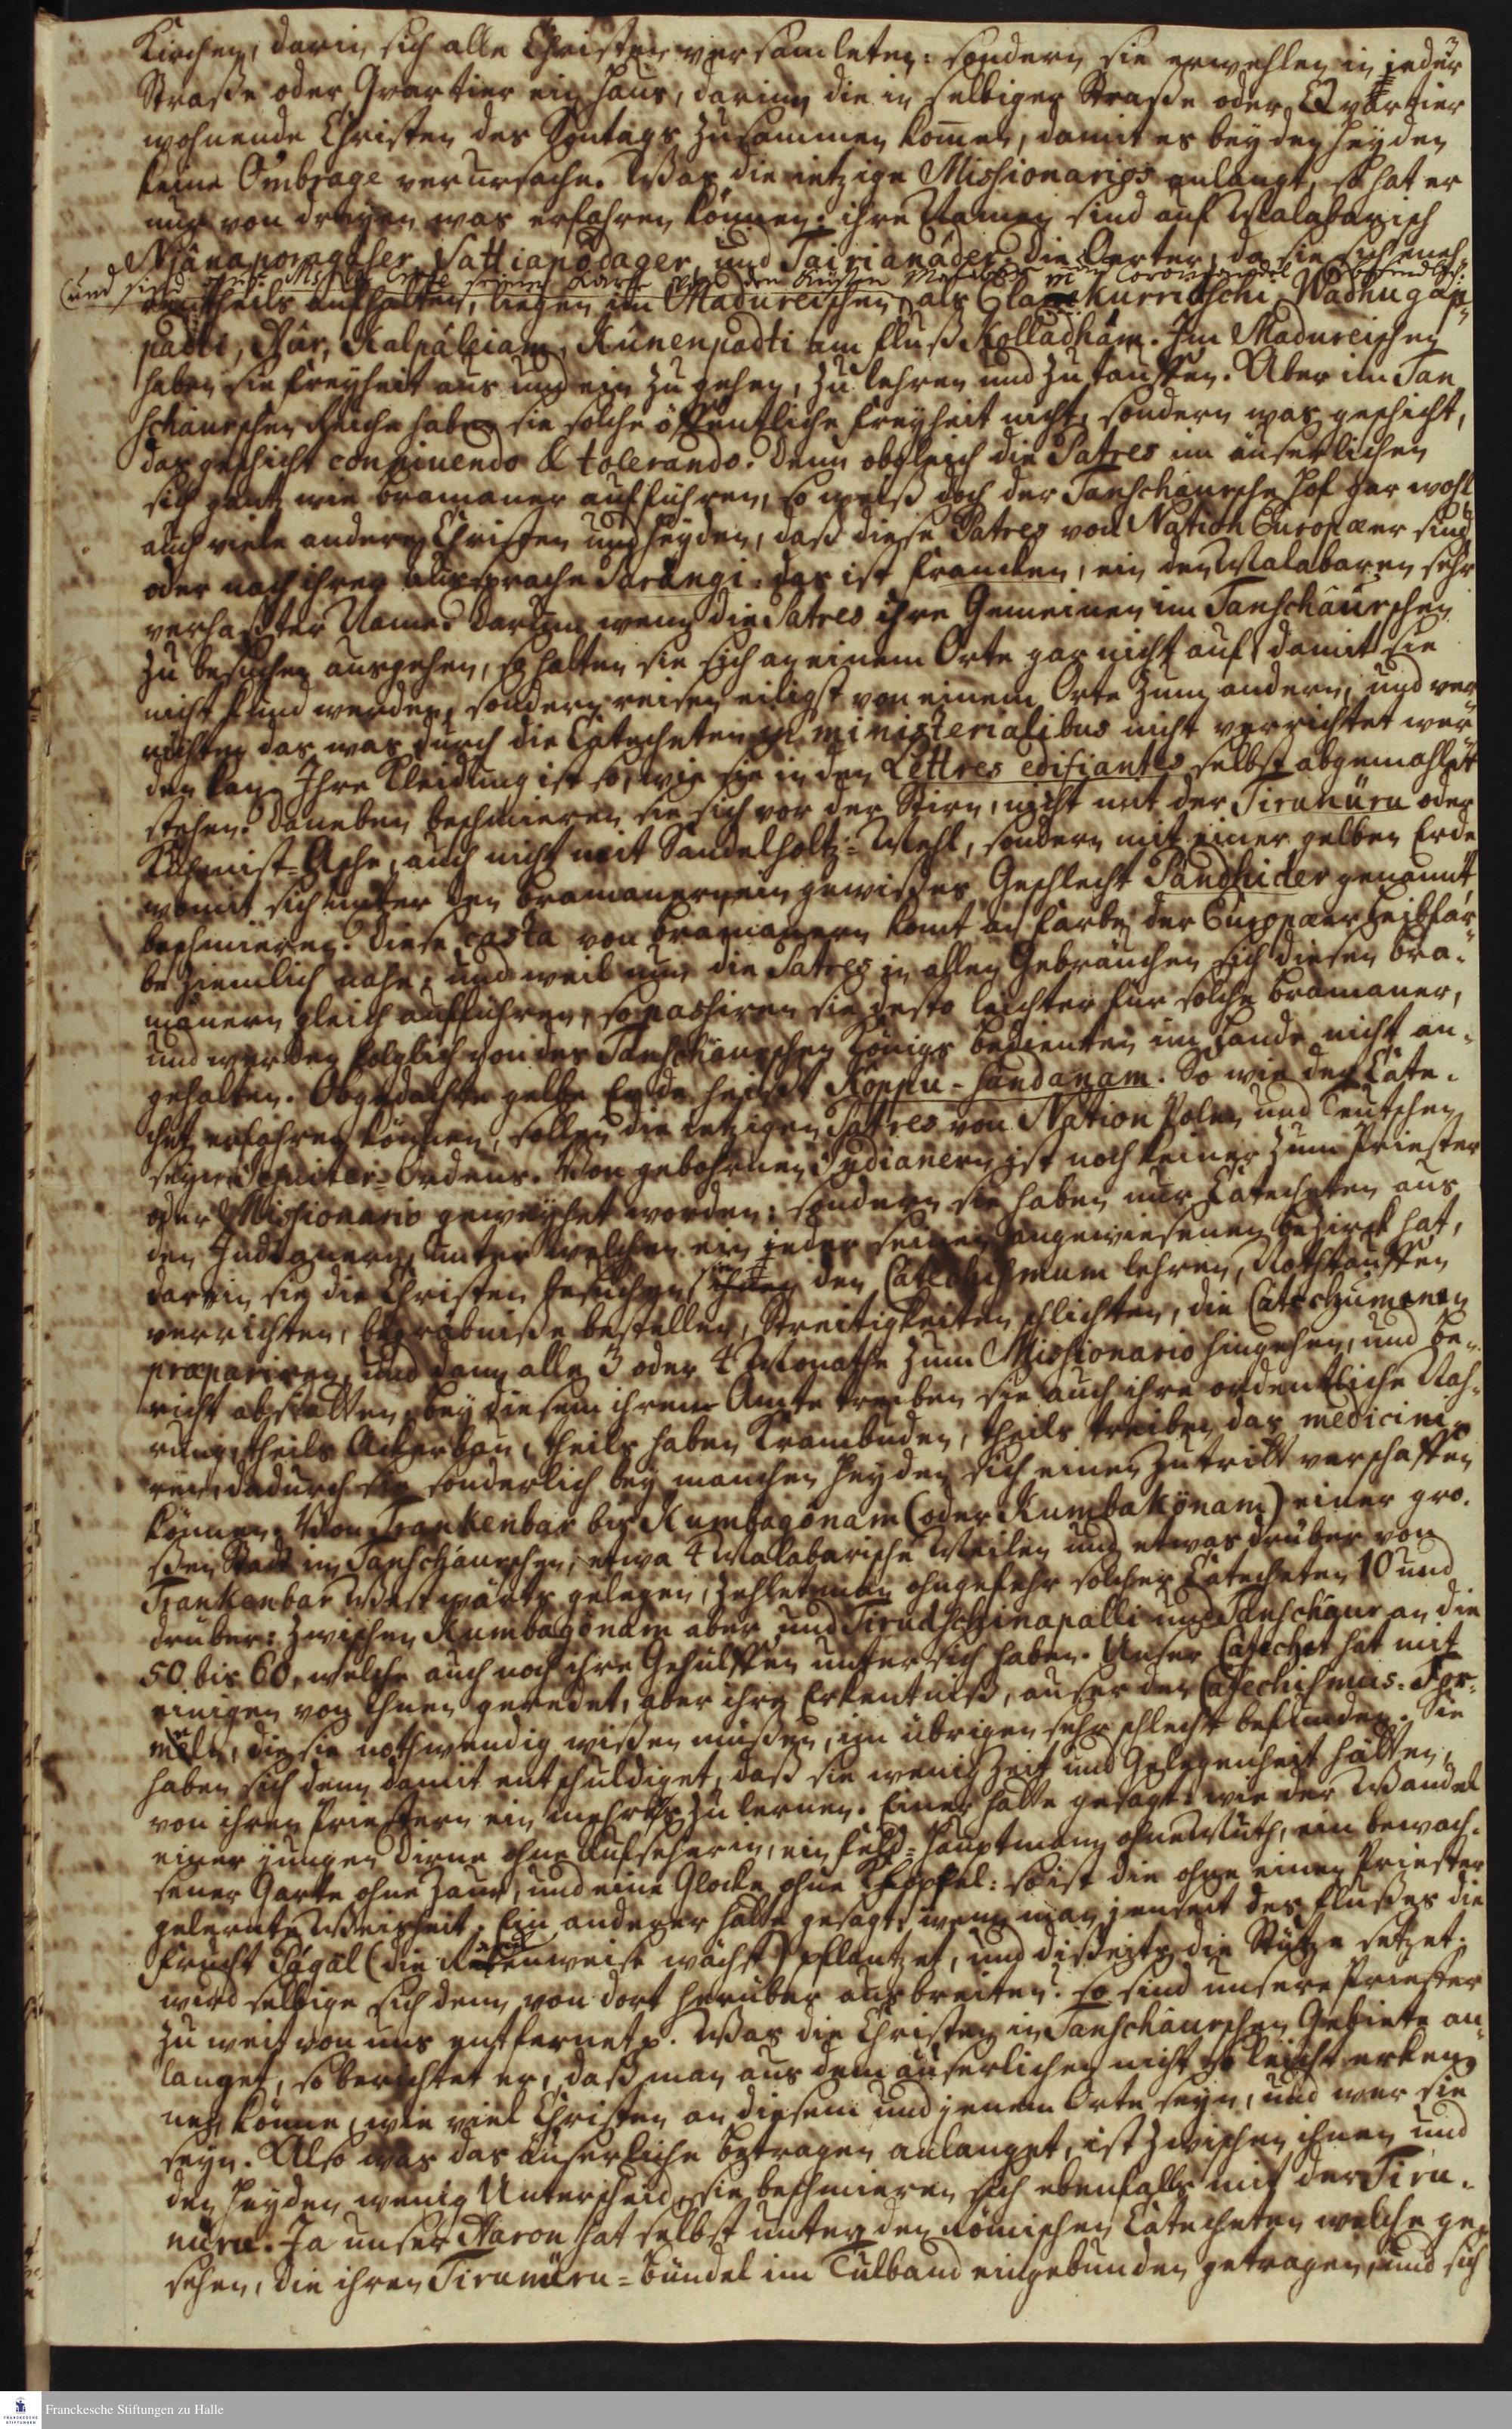 3
Kirchen, darin sich alle Christen versamleten: sondern sie erwehlen in jeder
Straße oder Qvartier ein Haus, darinn die in selbiger Straße oder Qvartier
wohnende Christen des Sontags zusammen kom̅en, damit es bey den Heyden
keine Ombrage verursache. Was die ietzige Missionarios anlangt, so hat er
nur von dreyen was erfahren können: ihre Namen sind auf Malabarisch
Njânaporagâser, Sattiapôdager, und Tairianâder: die Oerter, da sie sich meh-
(und sind auf
theils aufhalten, liegen im Madureischen, als Elakurridschi, Wadhugap-
patti, Aûr, Kalpâleiam, Kûnenpadti am Fluß Kolladham. Im Madureischen
haben sie Freyheit aus und ein zu gehen, zu lehren und zu tauffen. Aber im Tan-
schaurschen Reiche haben sie solche öffentliche Freyheit nicht, sondern was geschicht,
das geschicht connivendo & tolerando. Denn obgleich die Patres im äuserlichen
sich gantz wie Bramaner aufführen, so weiß doch der Tanschaursche Hof gar wohl
auch viele andere Christen und Heyden, daß diese Patres von Nation Europæer sind,
oder nach ihrer Aussprache Parangi: das ist Francken, ein den Malabaren sehr
verhaßter Name. Darum wenn die Patres ihre Gemeinen im Tanschaurschen
zu besuchen ausgehen, so halten sie sich an einem Orte gar nicht auf, damit sie
nicht kund werden, sondern reisen eiligst von einem Orte zum andern, und ver-
richten das was durch die Catecheten in ministerialibus nicht verrichtet wer-
den kan. Ihre Kleidung ist so, wie sie in den Lettres edifiantes selbst abgemahlet
stehen. Daneben beschmieren sie sich vor der Stirn, nicht mit der Tirunûru oder
Kühmist-Asche, auch nicht mit Sandelholtz-Mehl, sondern mit einer gelben Erde
womit sich unter den Bramanern ein gewißes Geschlecht Pandhider genannt
beschmieren. Diese casta von Bramanern komt an Farbe der Europæer Leibfar-
be ziemlich nahe; und weil nun die Patres in allen Gebräuchen sich diesen Bra-
manern gleich aufführen, so passiren sie desto leichter für solche Bramaner,
und werden folglich von des Tanschaurschen Königs Bedienten im Lande nicht an-
gehalten. Obgedachte gelbe Erde heißt Kôppu-sandanam. So wie der Cate-
chet erfahren können, sollen die ietzigen Patres von Nation Polen und Teutschen
seyn Jesuiter-Ordens. Von gebohrnen Indianern ist noch keiner zum Priester
oder Missionario geweyhet worden: sondern sie haben nur Catecheten aus
den Indianern, unter welchen ein jeder seinen angewiesenen Bezirck hat,
darein sie die Christen besuchen, den Catechismum lehren, Nothtauffen
verrichten, Begräbniße bestellen, Streitigkeiten schlichten, die Catechumenen
præpariren, und dann alle 3 oder 4 Monathe zum Missionario hingehen, und Be-
richt abstatten. Bey diesem ihrem Amte treiben sie auch ihre ordentliche Nah-
rung, theils Ackerbau, theils haben Krambuden, theils treiben das medicini-
ren, dadurch sie sonderlich bey manchen Heyden sich einen Zutritt verschaffen
können. Von Trankenbar bis Kumbagônam (oder Kumbakônam) einer gro-
ßen Stadt im Tanschaurschen, etwa 4 Malabarische Meilen und etwas drüber von
Trankenbar Westwärts gelegen, zehlet man ohngefehr solcher Catecheten 10 und
drüber: zwischen Kumbagônam aber und Tirudschinapalli und Tanschaur an die
50 bis 60, welche auch noch ihre Gehülffen unter sich haben. Unser Catechet hat mit
einigen von Ihnen geredet, aber ihre Erkentniß, auser den Catechismus-For-
meln, die sie nothwendig wißen müßen, im übrigen sehr schlecht befunden. Sie
haben sich denn damit entschuldiget, daß sie wenig Zeit und Gelegenheit hätten,
von ihren Priestern ein mehrers zu lernen. Einer hatte gesagt: wie der Wandel
einer jungen Dirne ohne Aufseherin, ein Feld-Hauptmann ohne Muth, ein bewach-
sener Garte ohne Zaun, und eine Glocke ohne Kleppel: so ist die ohne einen Priester
gelernte Weisheit. Ein anderer hatte gesagt: wenn man jenseit des Flußes die
Frucht Pâgal (die Rancken weise wächst) pflantzet, und disseits die Stütze setzet:
wird selbige sich denn von dort herüber ausbreiten? so sind unsere Priester
zu weit von uns entfernet p. Was die Christen in Tanschaurschen Gebiete an-
langet, so berichtet er, daß man aus dem äuserlichen nicht so leicht erken-
nen könne, wie viel Christen an diesem und jenem Orte seyn, und wer sie
seyn. Also was das äuserliche Betragen anlanget, ist zwischen ihnen und
den Heyden wenig Unterscheid, sie beschmieren sich ebenfalls mit der Tiru-
nûru. Ja unser Aaron hat selbst unter den römischen Catecheten welche ge-
sehen, die ihren Tirunûru-Bündel im Tulband eingebunden getragen, und sich
Franckesche Stiftungen zu Halle